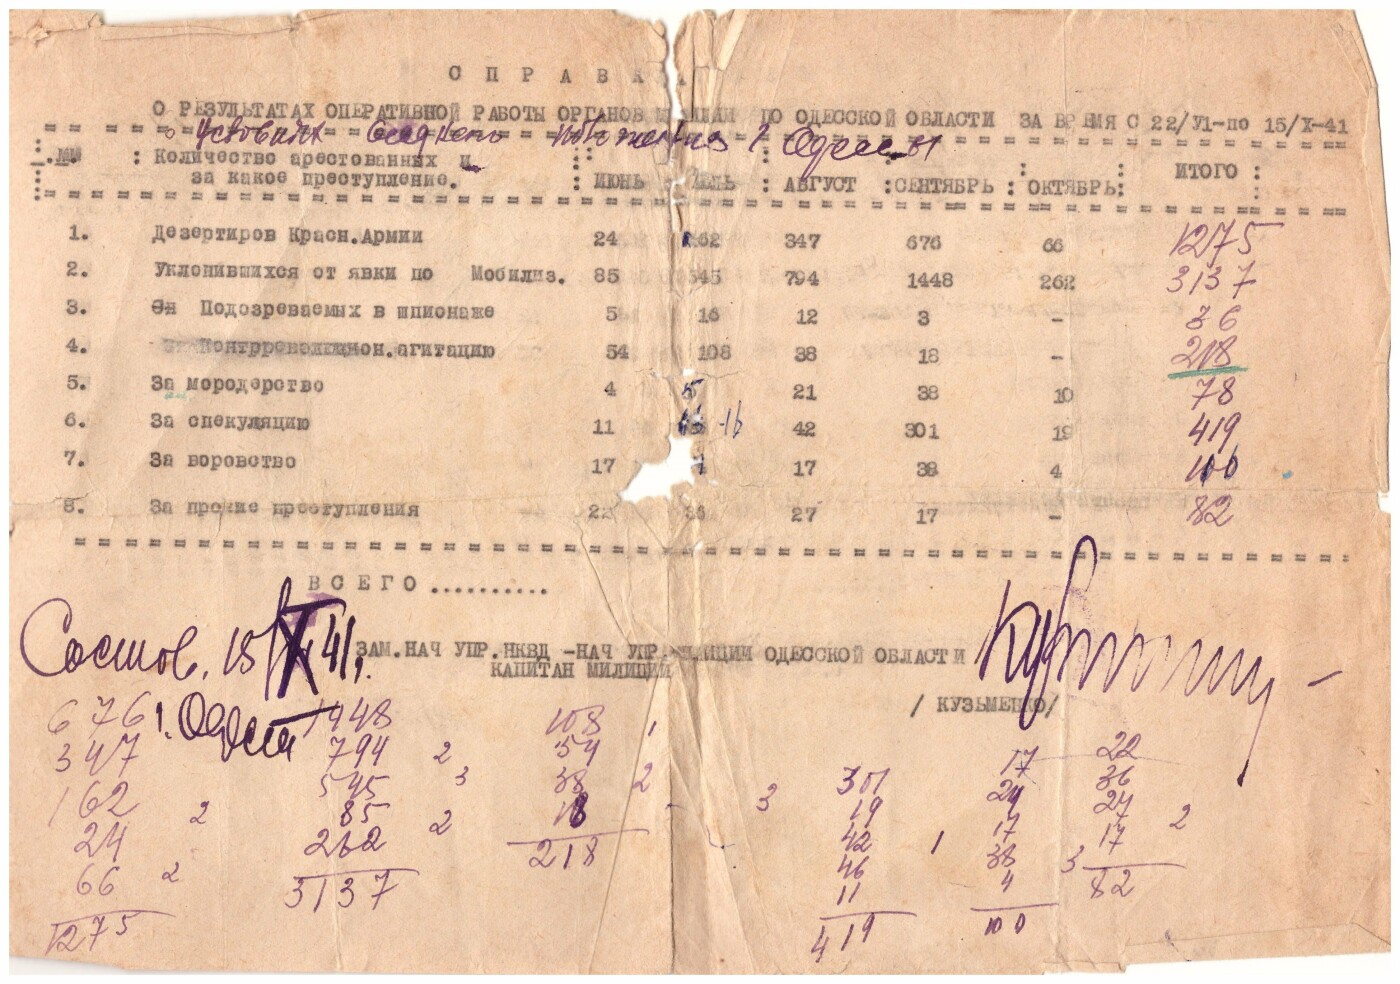 СПРАВК
О РЕЗУЛЬТАТАХ ОПЕРАТИВНОЙ РАБОТЫ ОРГАНОВ МИЛИЦИИ ПО ОДЕССКОЙ ОБЛАСТИ ЗА ВРЕМЯ С 22/У1-по 15/Х-41
в условиях осадного положения г. Одессы
№№ : Количество арестованных и за какое преступление. : ИЮНЬ : ИЮЛЬ : АВГУСТ : СЕНТЯБРЬ : ОКТЯБРЬ : ИТОГО :
1. Дезертиров Красн.Армии 24 162 347 676 66 1275
2. Уклонившихся от явки по Мобилиз. 85 545 794 1448 262 3137
3. Подозреваемых в шпионаже 5 16 12 3 - 36
4. Контрреволюцион.агитацию 54 108 38 18 - 218
5. За мородерство 4 5 21 38 10 78
6. За спекуляцию 11 46 42 301 19 419
7. За воровство 17 17 38 4 100
8. За прочие преступления 22 36 27 17 - 82
ВСЕГО..........
Состов. 15/X 41г.
г. Одесса
ЗАМ.НАЧ УПР.НКВД -НАЧ УПР.МИЛИЦИИ ОДЕССКОЙ ОБЛАСТИ
КАПИТАН МИЛИЦИИ
/ КУЗЬМЕНКО/
676 1448 108 1
347 794 2 54 17 22
162 2 545 3 38 2 3 301 24 36
24 85 2 18 19 17 27 2
66 2 262 218 42 1 38 3 17
1275 3137 46 4 82
11 100
419